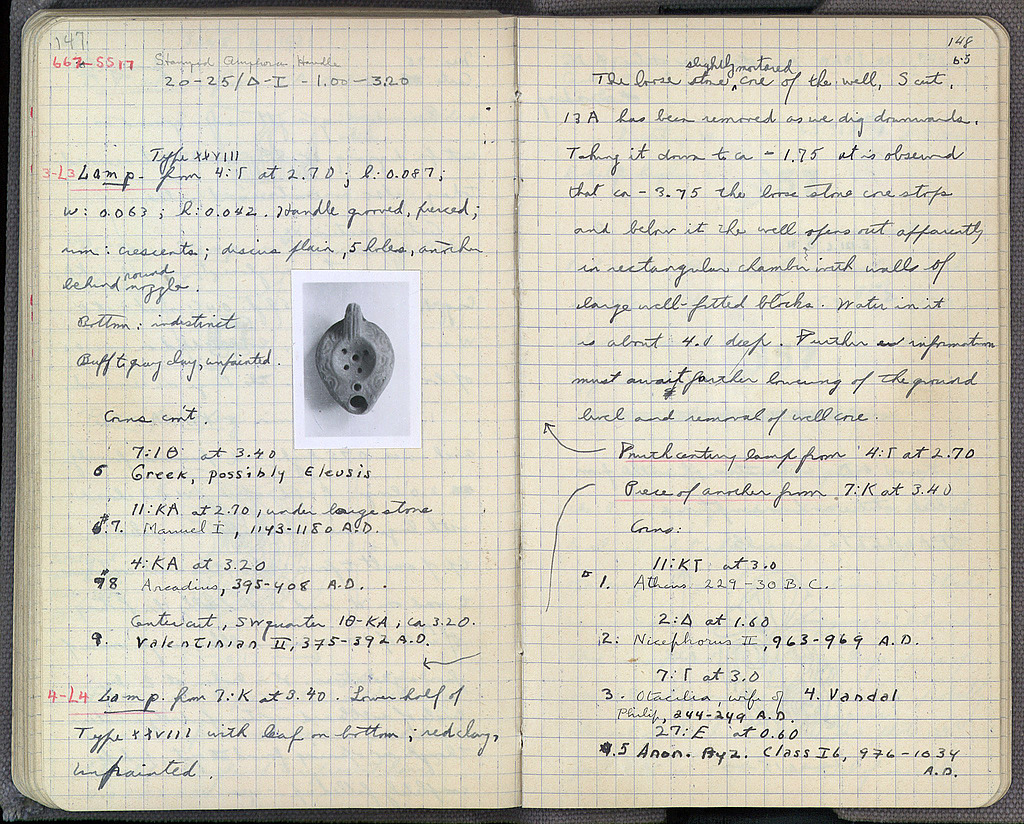 147
667-SS17 Stamped Amphora Handle
20-25/Δ-I -1.00-3.20
Type XXVIII
3-L3 Lamp. from 4:Γ at 2.70; l: 0.087;
w: 0.063; h: 0.042. Handle grooved, pierced;
rim: crescents; discus plain, 5 holes, another
behind round nozzle.
Bottom: indistinct
Buff to gray clay, unpainted.
Coins con't.
7:ΙΘ at 3.40
6 Greek, possibly Eleusis
11:ΚΑ at 2.70, under large stone
7. Manuel I, 1143-1180 A.D.
4:ΚΑ at 3.20
8 Arcadius, 395-408 A.D.
Center cut, SW quarter ΙΘ-ΚΑ; ca 3.20.
9. Valentinian II, 375-392 A.D.
4-L4 Lamp. from 7:Κ at 3.40. Lower half of
Type XXVIII with leaf on bottom; red clay,
unpainted.
148
6·5
The loose slightly mortared stone core of the well, S cut,
13 A has been removed as we dig downwards.
Taking it down to ca -1.75 it is observed
that ca -3.75 the loose stone core stops
and below it the well opens out apparently
in rectangular chamber with walls of
large well-fitted blocks. Water in it
is about 4.0 deep. Further information
must await further lowering of the ground
level and removal of well core.
Fourth century lamp from 4:Γ at 2.70
Piece of another from 7:Κ at 3.40
Coins:
11:ΚΓ at 3.0
1. Athens 229-30 B.C.
2:Δ at 1.60
2: Nicephorus II, 963-969 A.D.
7:Γ at 3.0
3. Otacilia, wife of 4. Vandal
Philip, 244-249 A.D.
27:Ε at 0.60
5 Anon. Byz. Class I6, 976-1034
A.D.